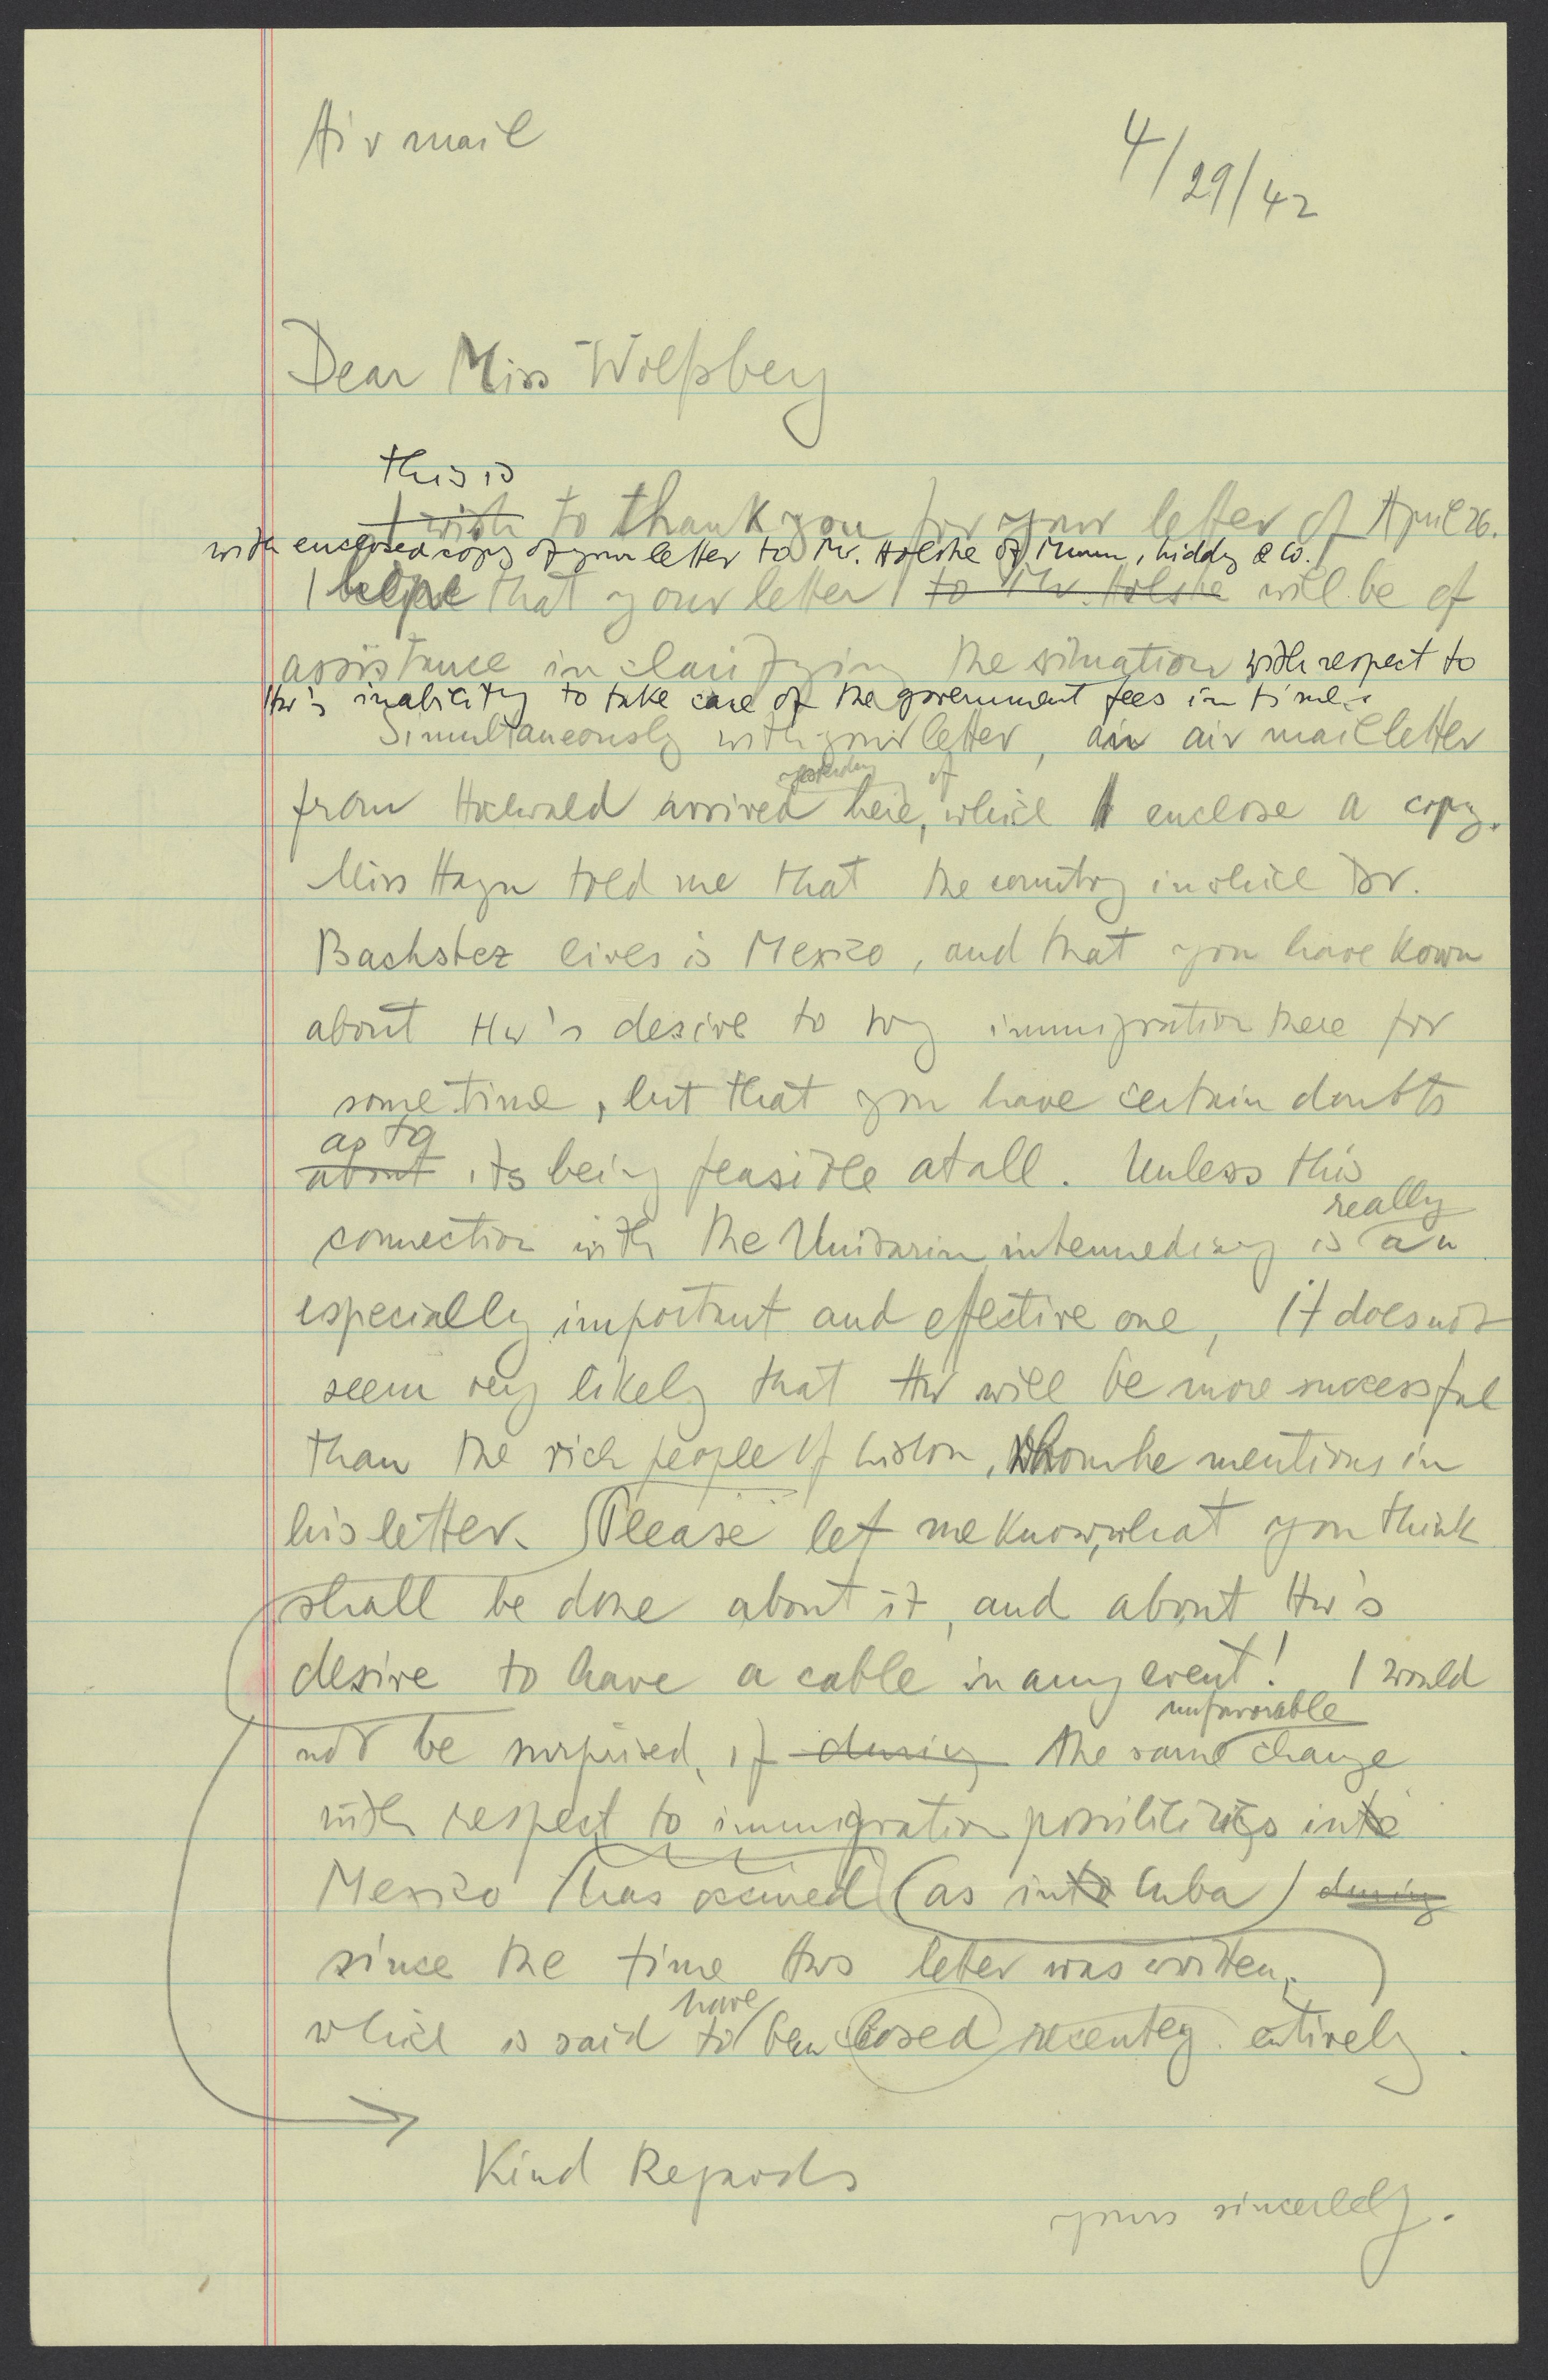 Air mail
4/29/42
Dear Miss Wolfsberg
this is
I wish to thank you for your letter of April 26.
with enclosed copy of your letter to Mr. Holske of Munn, Liddy & Co.
I hope that your letter to Mr. Holske will be of
assistance in clarifying the situation with respect to
Hw's inability to take care of the government fees in time.
Simultaneously with your letter, an air mail letter
yesterday of
from Hochwald arrived here, which I enclose a copy.
Miss Hagn told me that the country in which Dr.
Bachstez lives is Mexico, and that you have kown
about Hw's desire to try immigration there for
some time, but that you have certain doubts
as to
about its being feasible at all. Unless this
really
connection with the Unitarin intermediary is an
especially important and effective one, it does not
seem very likely that Hw will be more successful
than the rich people of Lisbon, whom he mentions in
his letter. Please let me know, what you think
shall be done about it, and about Hw's
desire to have a cable in any event! I would
unfavorable
not be surprised, if during the same change
with respect to immigration possibilities into
Mexico has occured (as into Cuba) during
since the time Hws letter was written,
have
which is said to been closed recently entirely.
Kind Regards
yours sincerely.